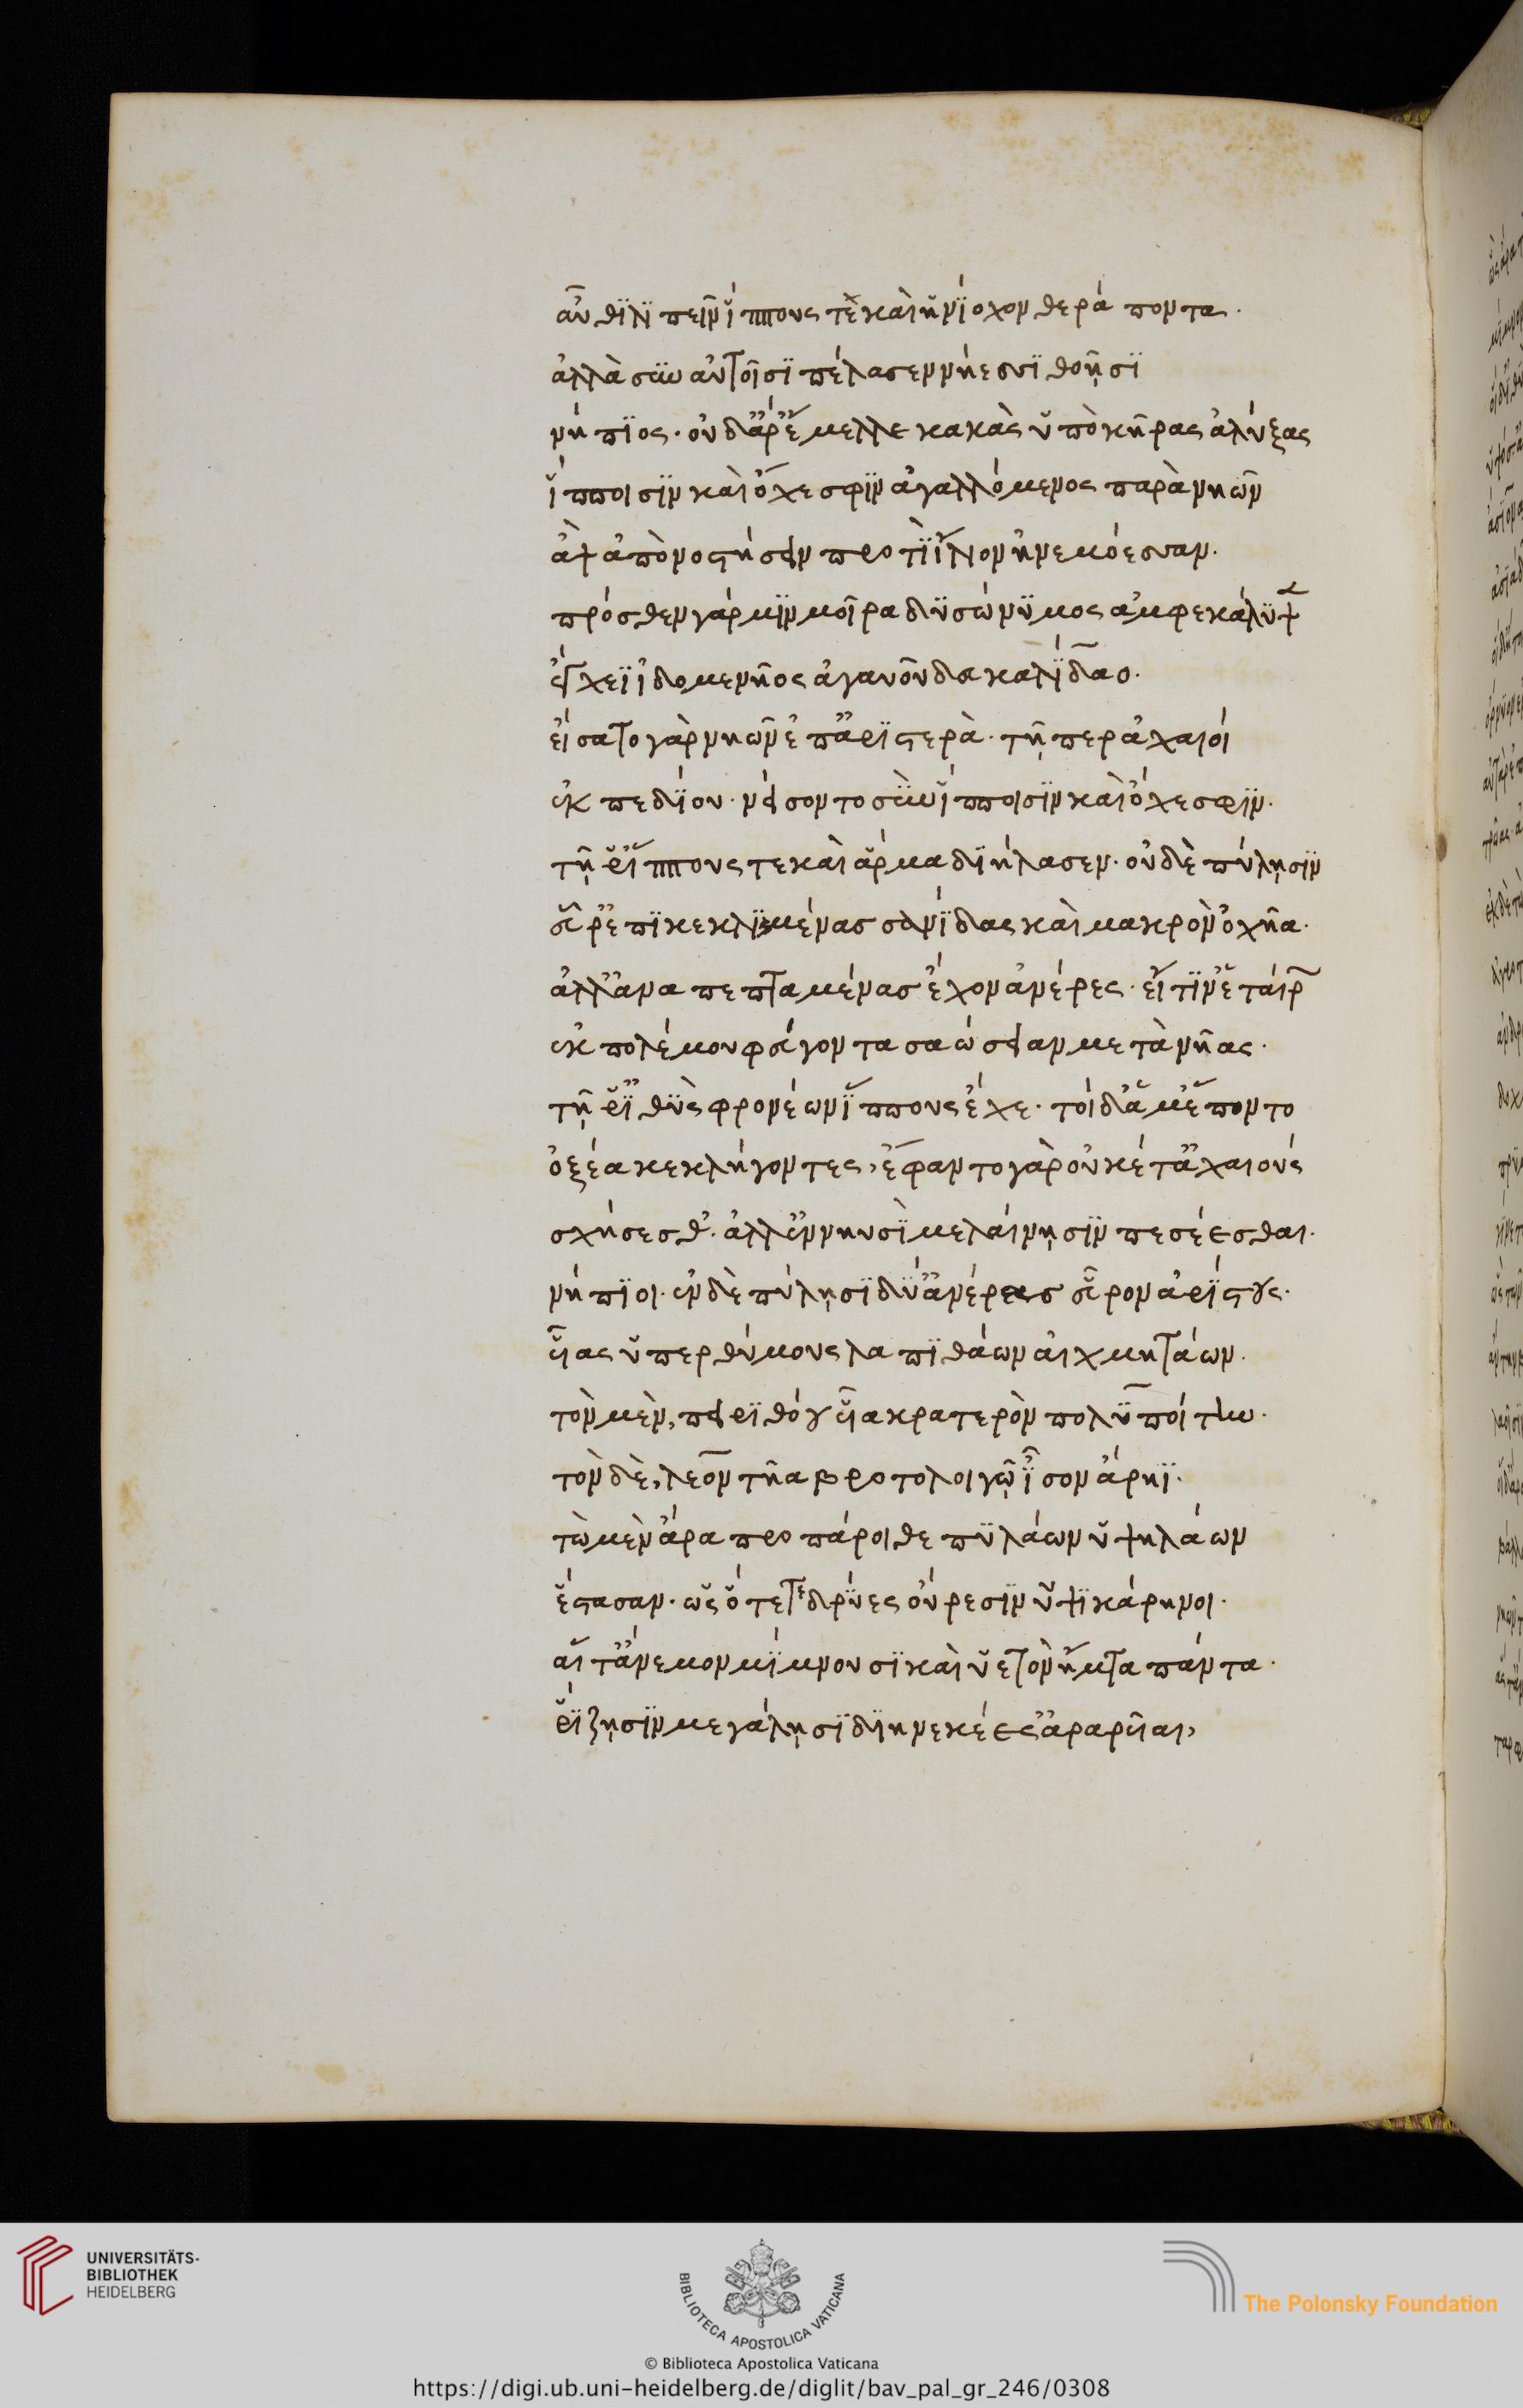 αὖθι λιπεῖν ἵππους τὲ καὶ ἡνίοχον θεράποντα.
ἀλλὰ σὺν αὐτοῖσι πέλασεν νήεσσι θοῇσι
νήπιος. οὐδ' ἄρ' ἔμελλε κακὰς ὑπὸ κῆρας ἀλύξας
ἵπποισιν καὶ ὄχεσφιν ἀγαλλόμενος παρὰ νηῶν
ἂψ ἀπονοστήσειν προτὶ ἴλιον ἠνεμόεσσαν.
πρόσθεν γάρ μιν μοῖρα δυσώνυμος ἀμφεκάλυψεν
ἔγχει ἰδομενῆος ἀγαυοῦ δευκαλίδαο.
εἴσατο γὰρ νηῶν ἐπ' ἀριστερὰ. τῇ περ ἀχαιοί
ἐκ πεδίου. νείσοντο σὺν ἵπποισιν καὶ ὄχεσφιν.
τῇ ῥ' ἵππους τε καὶ ἅρμα διήλασεν. οὐδὲ πύλησιν
εὗρ' ἐπικεκλιμένας σανίδας καὶ μακρὸν ὀχῆα.
ἀλλ' ἀναπεπταμένας ἔχον ἀνέρες. εἴ τιν' ἑταίρων
ἐκ πολέμου φεύγοντα σαώσειαν μετὰ νῆας.
τῇ ῥ' ἰθὺς φρονέων ἵππους ἔχε. τοὶ δ' ἅμ' ἕποντο
ὀξέα κεκλήγοντες, ἔφαντο γὰρ οὐκέτ' ἀχαιούς
σχήσεσθ'. ἀλλ' ἐν νηυσὶ μελαίνησιν πεσέεσθαι.
νήπιοι. ἐν δὲ πύλησι δύ' ἀνέρες εὗρον ἀρίστους.
υἷας ὑπερθύμους λαπιθάων αἰχμητάων.
τὸν μὲν, πειριθόου υἷα κρατερὸν πολυποίτην.
τὸν δὲ, λεοντῆα βροτολοιγῷ ἶσον ἄρηϊ.
τὼ μὲν ἄρα προπάροιθε πυλάων ὑψηλάων
ἕστασαν. ὡς ὅτε τε δρύες οὔρεσιν ὑψικάρηνοι.
αἵ τ' ἄνεμον μίμνουσι καὶ ὑετὸν ἤματα πάντα.
ῥίζησιν μεγάλησι διηνεκέες ἀραρυῖαι,
UNIVERSITÄTS-
BIBLIOTHEK
HEIDELBERG
BIBLIOTECA APOSTOLICA VATICANA
The Polonsky Foundation
© Biblioteca Apostolica Vaticana
https://digi.ub.uni-heidelberg.de/diglit/bav_pal_gr_246/0308